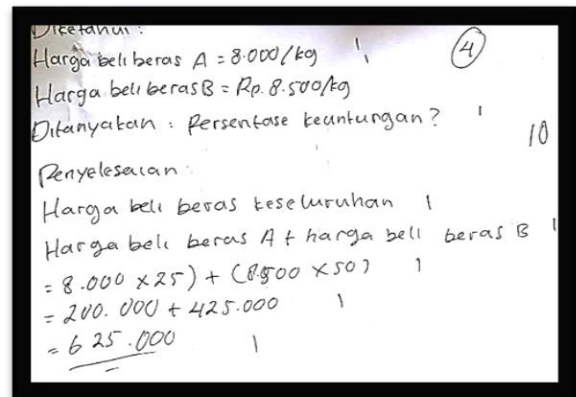 Diketahui :
Harga beli beras A = 8.000/kg 1
4
Harga beli beras B = Rp. 8.500/kg
Ditanyakan : Persentase keuntungan? 1
10
Penyelesaian :
Harga beli beras keseluruhan 1
Harga beli beras A + harga beli beras B 1
= 8.000 x 25) + (8.500 x 50) 1
= 200.000 + 425.000 1
= 625.000 1